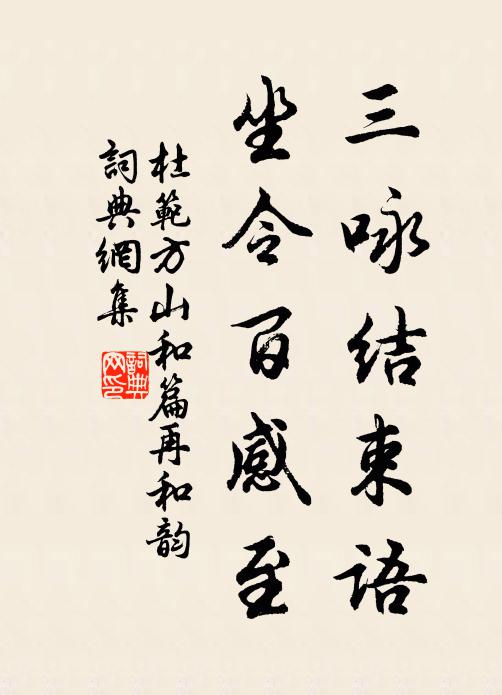 三咏結束語
坐令百感至
杜範方山和篇再和韵
詞典網集
詞典網印